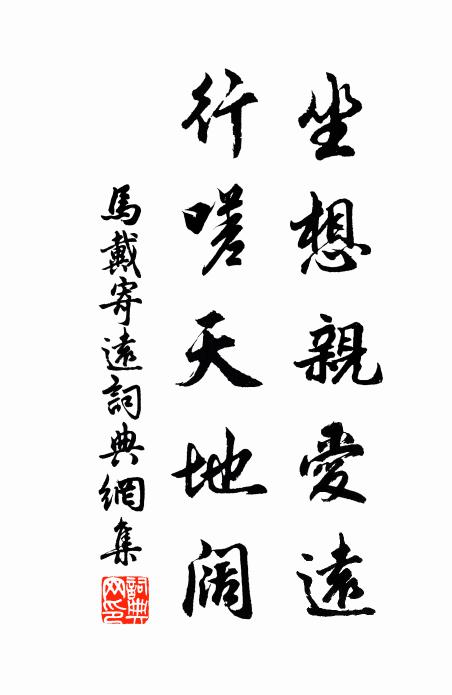 坐想親愛遠
行嗟天地闊
馬戴寄遠詞典網集
詞典網印